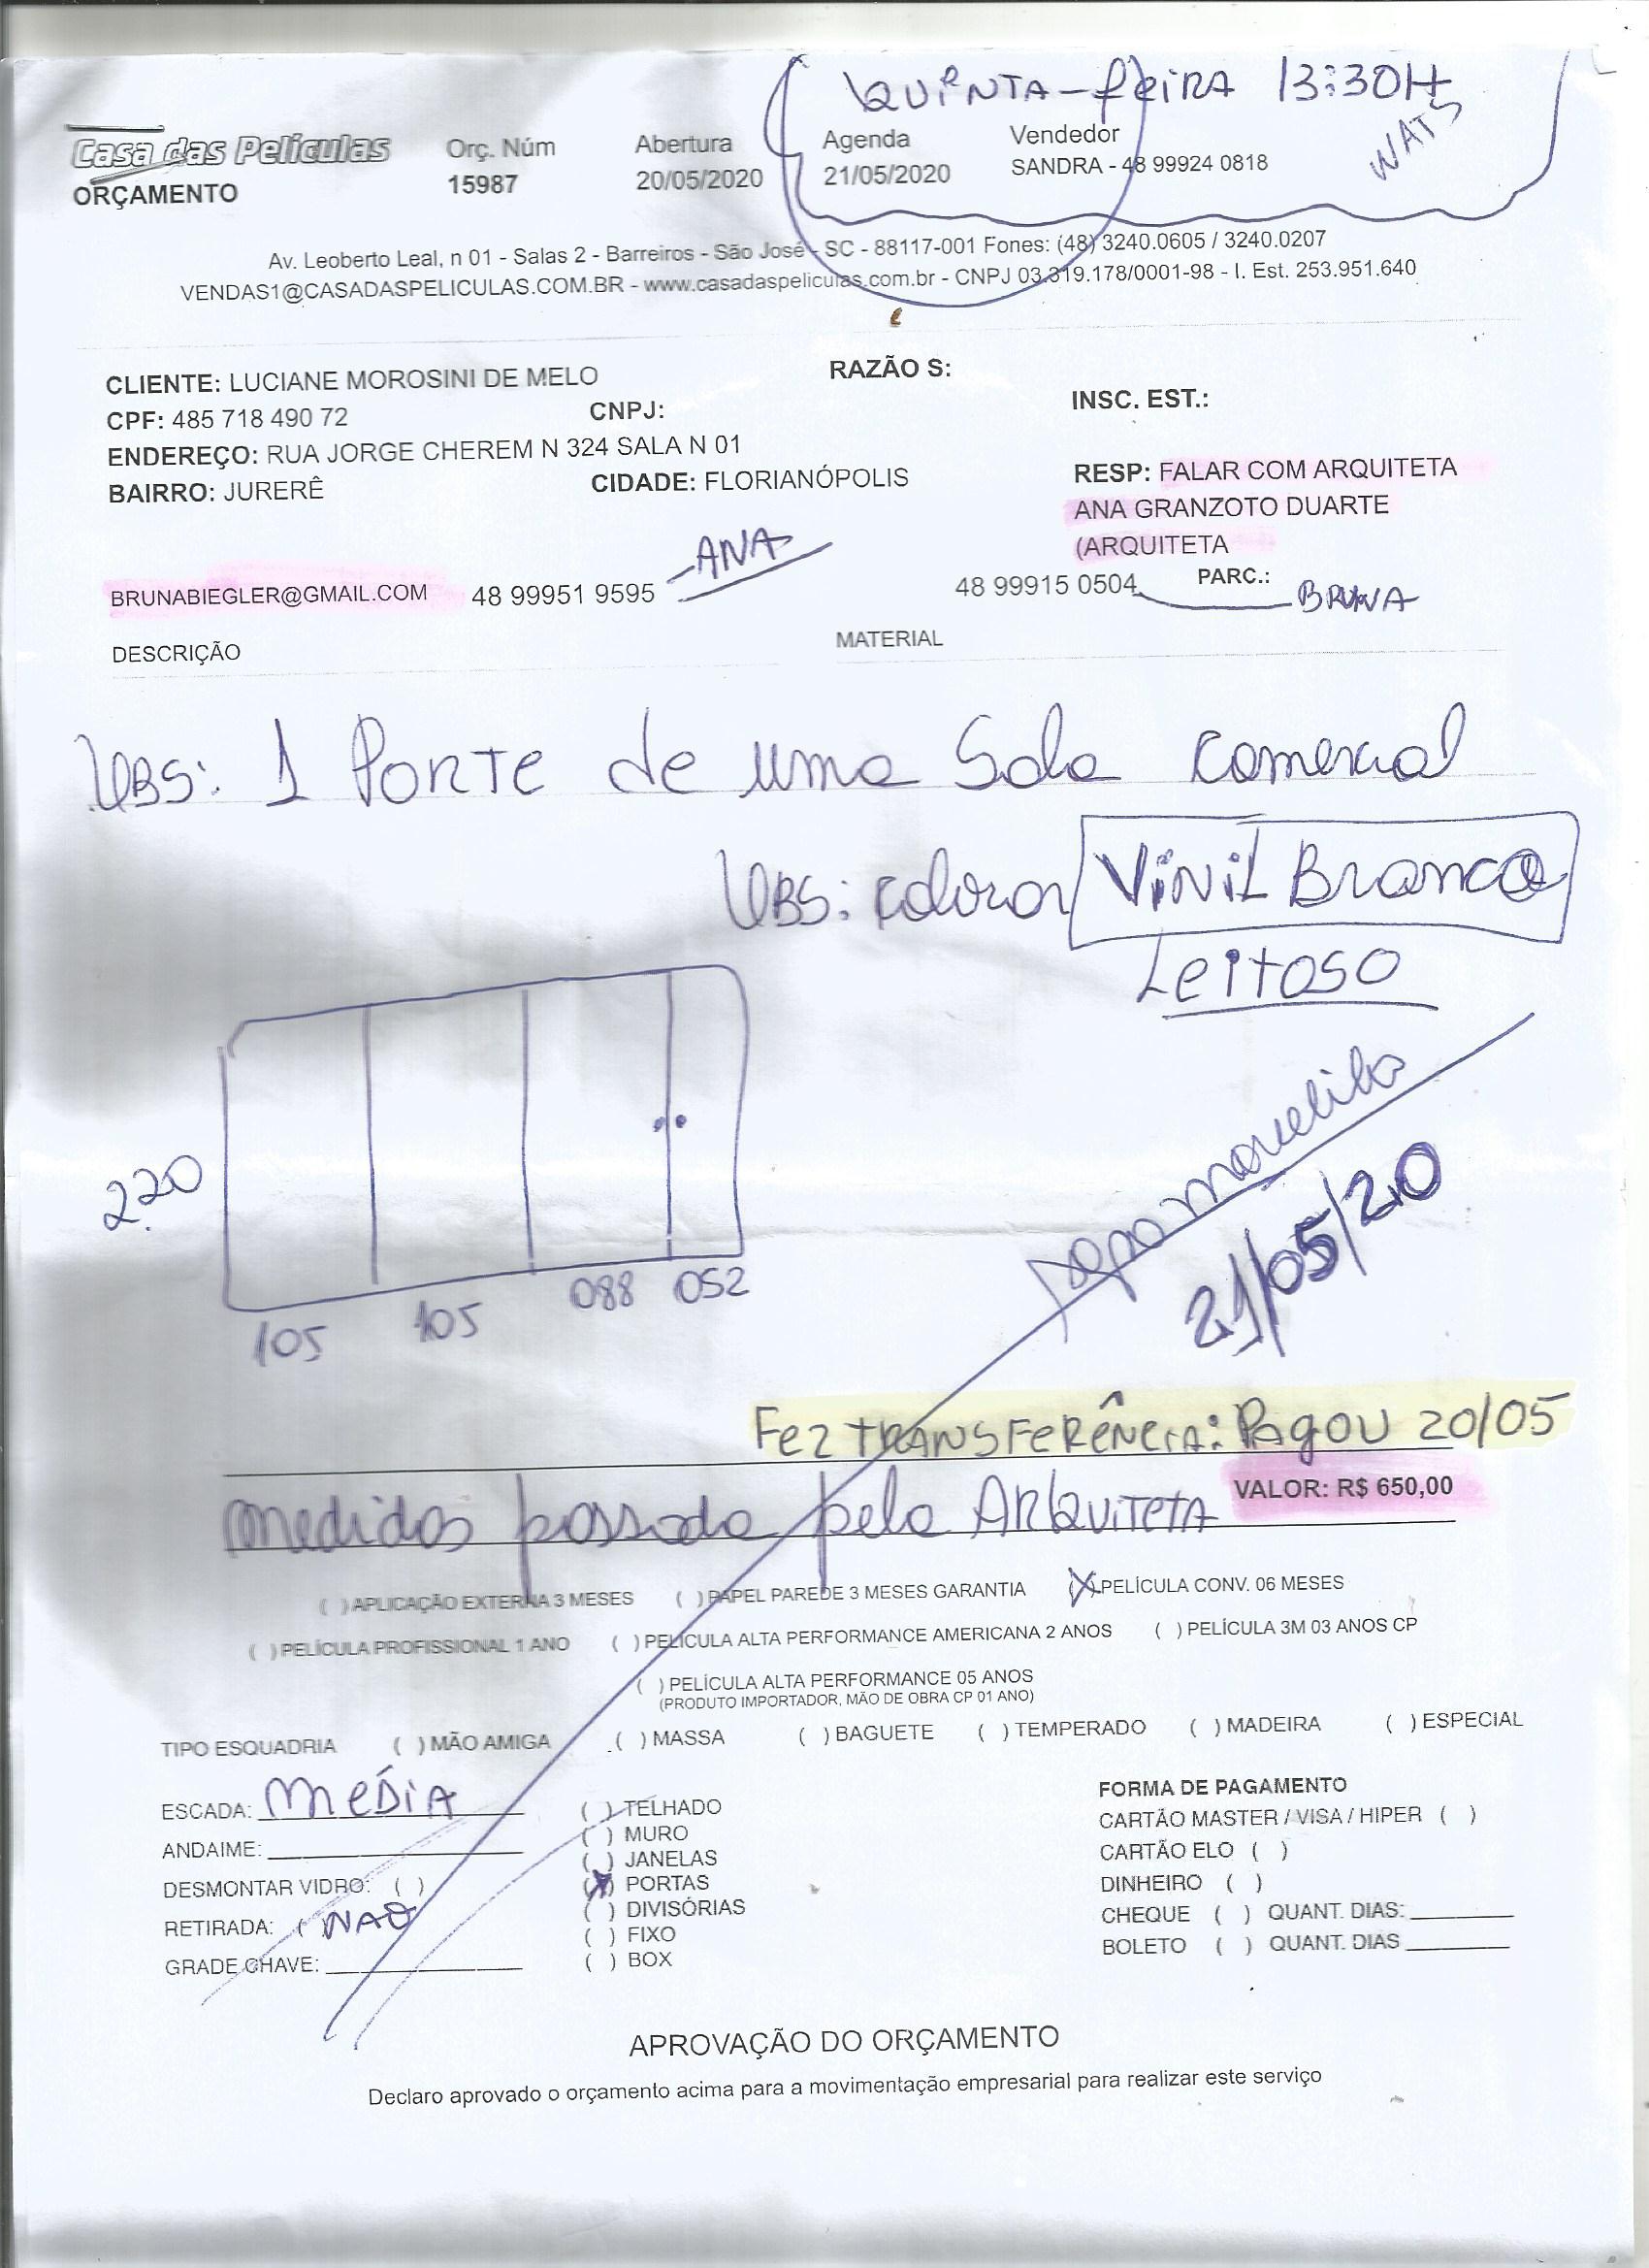 QUINTA-feIRA 13:30H
WATS
Casa das Películas
ORÇAMENTO
Orç. Núm
15987
Abertura
20/05/2020
Agenda
21/05/2020
Vendedor
SANDRA - 48 99924 0818
Av. Leoberto Leal, n 01 - Salas 2 - Barreiros - São José - SC - 88117-001 Fones: (48) 3240.0605 / 3240.0207
VENDAS1@CASADASPELICULAS.COM.BR - www.casadaspeliculas.com.br - CNPJ 03.319.178/0001-98 - I. Est. 253.951.640
CLIENTE: LUCIANE MOROSINI DE MELO
RAZÃO S:
CPF: 485 718 490 72
CNPJ:
INSC. EST.:
ENDEREÇO: RUA JORGE CHEREM N 324 SALA N 01
BAIRRO: JURERÊ
CIDADE: FLORIANÓPOLIS
RESP: FALAR COM ARQUITETA
ANA GRANZOTO DUARTE
(ARQUITETA
BRUNABIEGLER@GMAIL.COM
48 99951 9595
-ANA
48 99915 0504
PARC.:
BRUNA
DESCRIÇÃO
MATERIAL
OBS: 1 PORTE de uma Sala Comercial
OBS: colocar VINIL Branco
Leitoso
2.20
105
105
088
052
21/05/20
Fez TRANSFERÊNCIA: PAgOU 20/05
VALOR: R$ 650,00
medidas passada pela ARQUITETA
( ) APLICAÇÃO EXTERNA 3 MESES
( ) PAPEL PAREDE 3 MESES GARANTIA
(X) PELÍCULA CONV. 06 MESES
( ) PELÍCULA PROFISSIONAL 1 ANO
( ) PELÍCULA ALTA PERFORMANCE AMERICANA 2 ANOS
( ) PELÍCULA 3M 03 ANOS CP
( ) PELÍCULA ALTA PERFORMANCE 05 ANOS
(PRODUTO IMPORTADOR, MÃO DE OBRA CP 01 ANO)
TIPO ESQUADRIA ( ) MÃO AMIGA ( ) MASSA ( ) BAGUETE ( ) TEMPERADO ( ) MADEIRA ( ) ESPECIAL
ESCADA: MéDIA
ANDAIME:
DESMONTAR VIDRO: ( )
RETIRADA: ( NAO
GRADE CHAVE:
( ) TELHADO
( ) MURO
( ) JANELAS
(X) PORTAS
( ) DIVISÓRIAS
( ) FIXO
( ) BOX
FORMA DE PAGAMENTO
CARTÃO MASTER / VISA / HIPER ( )
CARTÃO ELO ( )
DINHEIRO ( )
CHEQUE ( ) QUANT. DIAS:
BOLETO ( ) QUANT. DIAS
APROVAÇÃO DO ORÇAMENTO
Declaro aprovado o orçamento acima para a movimentação empresarial para realizar este serviço